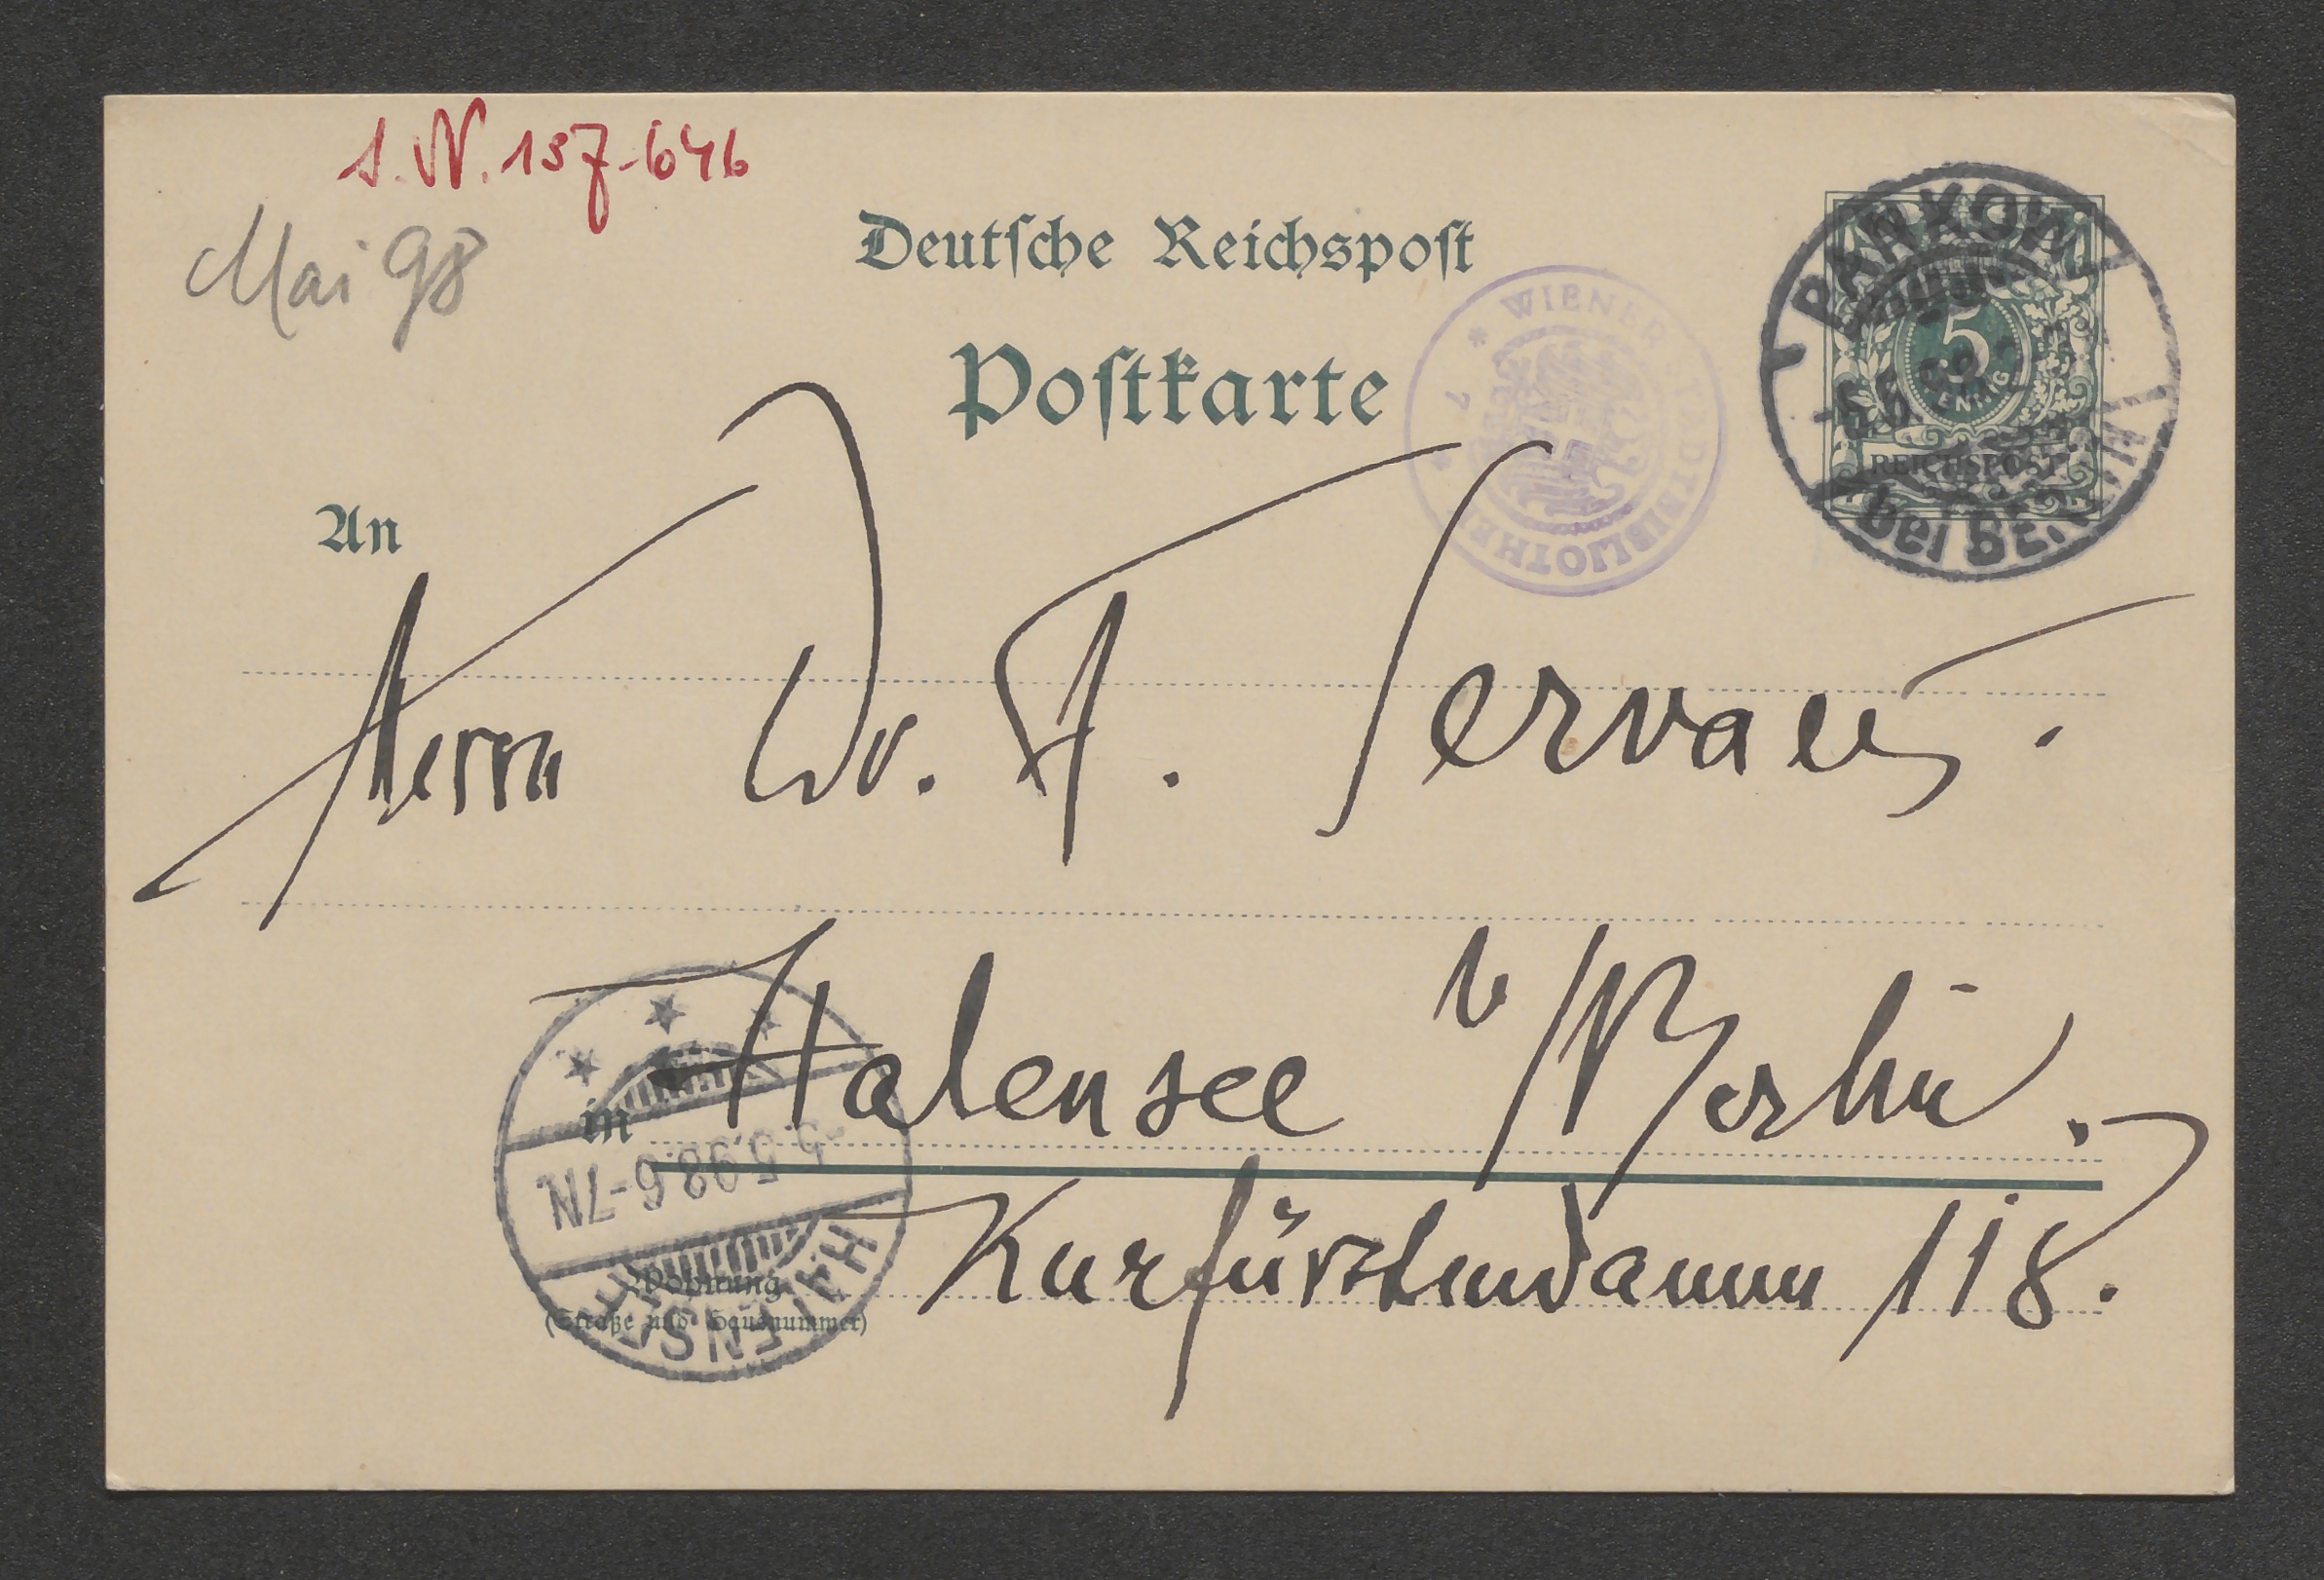 I. N. 137.646
Mai 98
Deutsche Reichspost
Postkarte
WIENER STADTBIBLIOTHEK
7
PANKOW
bei BERLIN
5
PFENNIG
REICHSPOST
An
Herrn Dr. F. Servaes.
in Halensee b/Berlin.
Kurfürstendamm 118.
Wohnung
(Straße und Hausnummer)
HALENSEE
5.5.98.6-7N